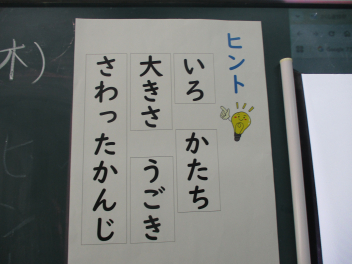 ヒント
いろ
かたち
大きさ
うごき
さわったかんじ
木)